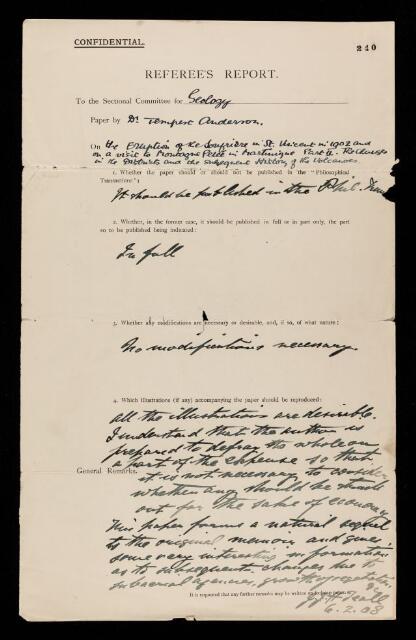 CONFIDENTIAL.
240
REFEREE'S REPORT.
To the Sectional Committee for Geology
Paper by Dr Tempest Anderson.
On the Eruption of the Soufrière in St. Vincent in 1902 and
on a visit to Montagne Pelée in Martinique Part II. The changes
in the Districts and the subsequent History of the Volcanoes.
1. Whether the paper should or should not be published in the "Philosophical
Transactions":
It should be published in the Phil. Trans
2. Whether, in the former case, it should be published in full or in part only, the part
so to be published being indicated:
In full
3. Whether any modifications are necessary or desirable, and, if so, of what nature:
No modifications necessary.
4. Which illustrations (if any) accompanying the paper should be reproduced:
All the illustrations are desirable.
I understand that the author is
prepared to defray the whole or
a part of the expense so that
General Remarks.
it is not necessary to consider
whether any should be struck
out for the sake of economy
This paper forms a natural sequel
to the original memoir and gives
some very interesting information
as to subsequent changes due to
subaerial agencies, growth of vegetation &c
It is requested that any further remarks may be written on
J J H Teall
6.2.08